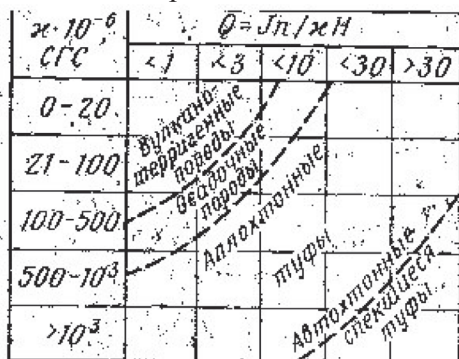 ϰ·10⁻⁶
СГС
Q=Jn/ϰH
<1 <3 <10 <30 >30
0-20
21-100
100-500
500-10³
>10³
Вулкано-
терригенные
породы
Осадочные
породы
Аллохтонные
туфы
Автохтонные
спекшиеся
туфы